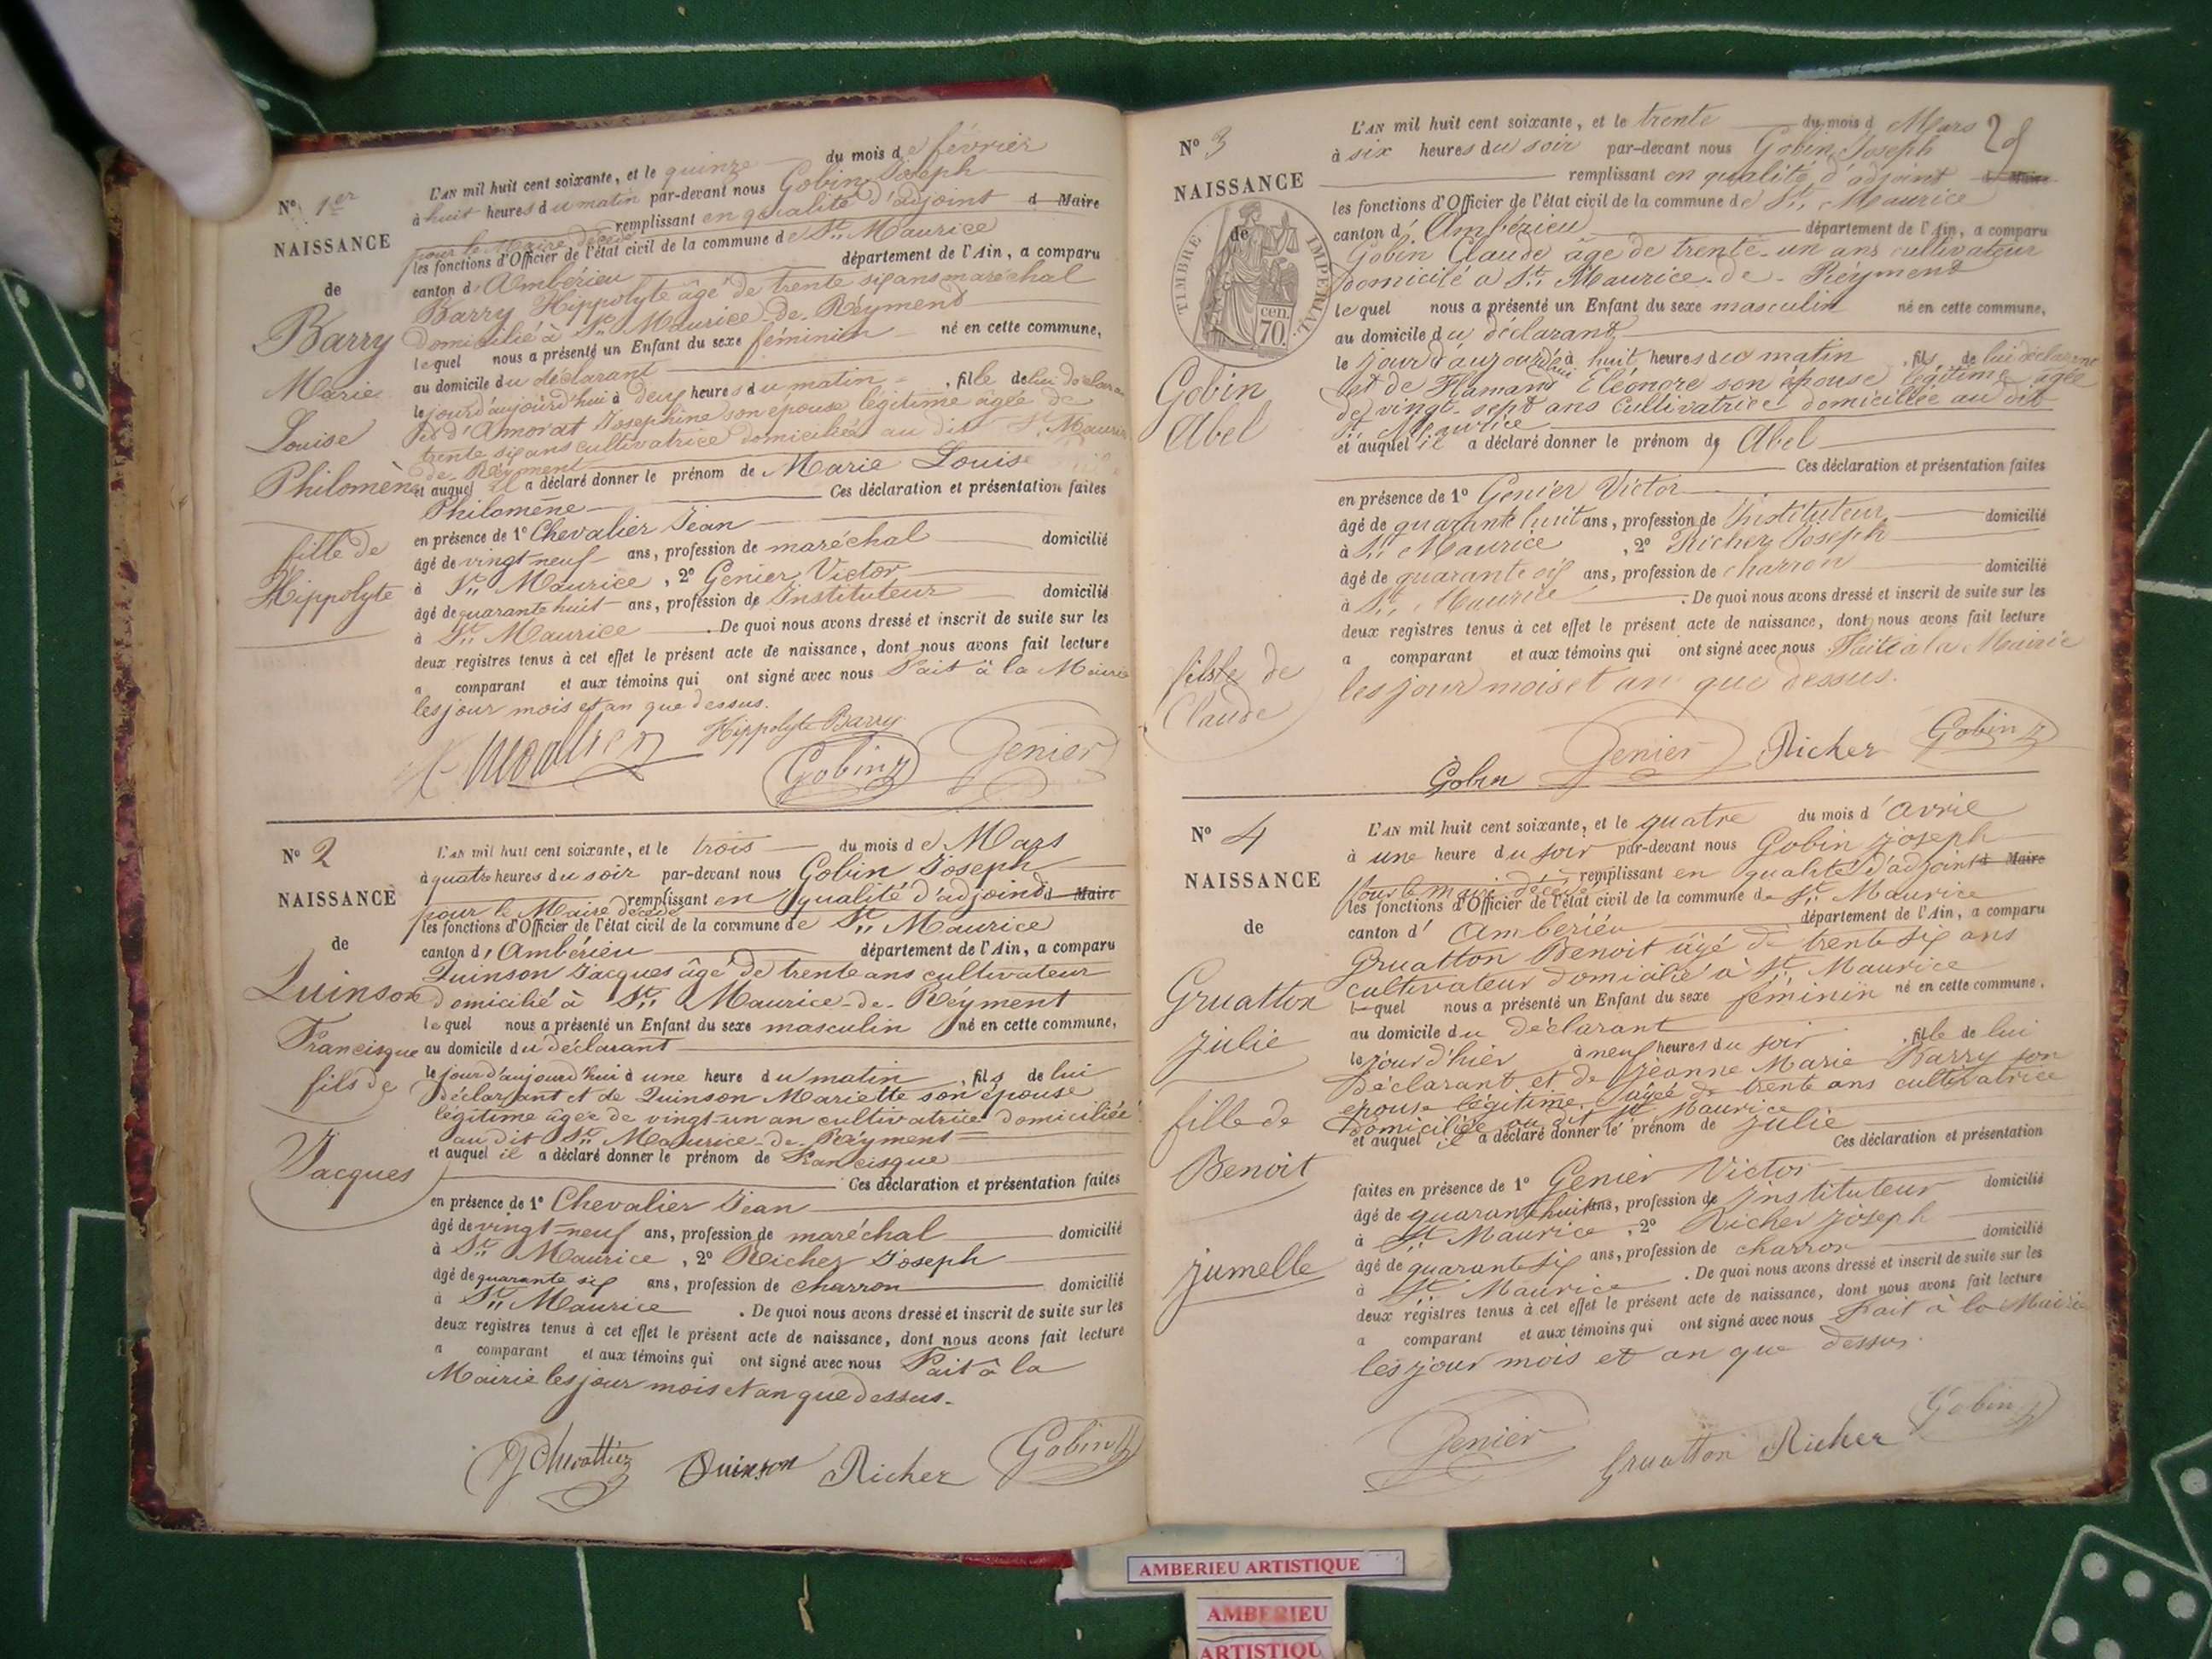 N° 1er
NAISSANCE
de
Barry
Marie
Louise
Philomène
fille de
Hippolyte
L'AN mil huit cent soixante, et le quinze du mois de février
à huit heures du matin par-devant nous Gobin Joseph
remplissant en qualité d'adjoint d Maire
pour le Maire décédé
les fonctions d'Officier de l'état civil de la commune de St Maurice
canton d'Ambérieu département de l'Ain, a comparu
Barry Hippolyte âgé de trente six ans maréchal
domicilié à St Maurice-de-Réymend
lequel nous a présenté un Enfant du sexe féminin né en cette commune,
au domicile du déclarant
le jour d'aujourd'hui à deux heures du matin, fille de lui déclarant
et d'Amorat Josephine son épouse légitime agée de
trente six ans cultivatrice domiciliée au dit St Maurice
de-Réyment
et auquel il a déclaré donner le prénom de Marie Louise
Philomène Ces déclaration et présentation faites
en présence de 1° Chevalier Jean
âgé de vingt-neuf ans, profession de maréchal domicilié
à St Maurice, 2° Genier Victor
âgé de quarante huit ans, profession de Instituteur domicilié
à St Maurice. De quoi nous avons dressé et inscrit de suite sur les
deux registres tenus à cet effet le présent acte de naissance, dont nous avons fait lecture
a comparant et aux témoins qui ont signé avec nous Fait à la Mairie
les jour mois et an que dessus.
Hippolyte Barry
Gobin Genier
N° 2
NAISSANCE
de
Quinson
Francisque
fils de
Jacques
L'AN mil huit cent soixante, et le trois du mois de Mars
à quatre heures du soir par-devant nous Gobin Joseph
remplissant en qualité d'adjoint d Maire
pour le Maire décédé
les fonctions d'Officier de l'état civil de la commune de St Maurice
canton d'Ambérieu département de l'Ain, a comparu
Quinson Jacques âgé de trente ans cultivateur
domicilié à St Maurice-de-Réyment
lequel nous a présenté un Enfant du sexe masculin né en cette commune,
au domicile du déclarant
le jour d'aujourd'hui à une heure du matin, fils de lui
déclarant et de Quinson Mariette son épouse
légitime âgée de vingt-un an cultivatrice domiciliée
au dit St Maurice-de-Réyment
et auquel il a déclaré donner le prénom de Francisque
Ces déclaration et présentation faites
en présence de 1° Chevalier Jean
âgé de vingt-neuf ans, profession de maréchal domicilié
à St Maurice, 2° Richer Joseph
âgé de quarante six ans, profession de charron domicilié
à St Maurice. De quoi nous avons dressé et inscrit de suite sur les
deux registres tenus à cet effet le présent acte de naissance, dont nous avons fait lecture
a comparant et aux témoins qui ont signé avec nous Fait à la
Mairie les jour mois et an que dessus.
Quinson Richer Gobin
N° 3
NAISSANCE
de
TIMBRE IMPERIAL
70 cen.
Gobin
Abel
fils de
Claude
L'AN mil huit cent soixante, et le trente du mois d Mars
à six heures du soir par-devant nous Gobin Joseph
remplissant en qualité d'adjoint d Maire
les fonctions d'Officier de l'état civil de la commune de St Maurice
canton d'Ambérieu département de l'Ain, a comparu
Gobin Claude âgé de trente-un ans cultivateur
domicilié à St Maurice-de-Réymend
lequel nous a présenté un Enfant du sexe masculin né en cette commune,
au domicile du déclarant
le jour d'aujourd'hui à huit heures du matin, fils de lui déclarant
et de Flamand Eléonore son épouse légitime agée
de vingt-sept ans cultivatrice domiciliée au dit
St Maurice
et auquel il a déclaré donner le prénom de Abel
Ces déclaration et présentation faites
en présence de 1° Genier Victor
âgé de quarante huit ans, profession de Instituteur domicilié
à St Maurice, 2° Richer Joseph
âgé de quarante six ans, profession de charron domicilié
à St Maurice. De quoi nous avons dressé et inscrit de suite sur les
deux registres tenus à cet effet le présent acte de naissance, dont nous avons fait lecture
a comparant et aux témoins qui ont signé avec nous Fait à la Mairie
les jour mois et an que dessus.
Gobin Genier Richer Gobin
N° 4
NAISSANCE
de
Gruatton
Julie
fille de
Benoit
jumelle
L'AN mil huit cent soixante, et le quatre du mois d'avril
à une heure du soir par-devant nous Gobin Joseph
remplissant en qualité d'adjoint d Maire
pour le maire décédé
les fonctions d'Officier de l'état civil de la commune de St Maurice
canton d'Ambérieu département de l'Ain, a comparu
Gruatton Benoit âgé de trente six ans
cultivateur domicilié à St Maurice
lequel nous a présenté un Enfant du sexe féminin né en cette commune,
au domicile du déclarant
le jour d'hier à neuf heures du soir, fille de lui
déclarant et de Jeanne Marie Barry son
épouse légitime, âgée de trente ans cultivatrice
domiciliée au dit St Maurice
et auquel il a déclaré donner le prénom de Julie
Ces déclaration et présentation
faites en présence de 1° Genier Victor
âgé de quarante huit ans, profession de instituteur domicilié
à St Maurice, 2° Richer Joseph
âgé de quarante six ans, profession de charron domicilié
à St Maurice. De quoi nous avons dressé et inscrit de suite sur les
deux registres tenus à cet effet le présent acte de naissance, dont nous avons fait lecture
a comparant et aux témoins qui ont signé avec nous Fait à la Mairie
les jour mois et an que dessus.
Genier Gruatton Richer Gobin
AMBERIEU ARTISTIQUE
AMBERIEU
ARTISTIQU